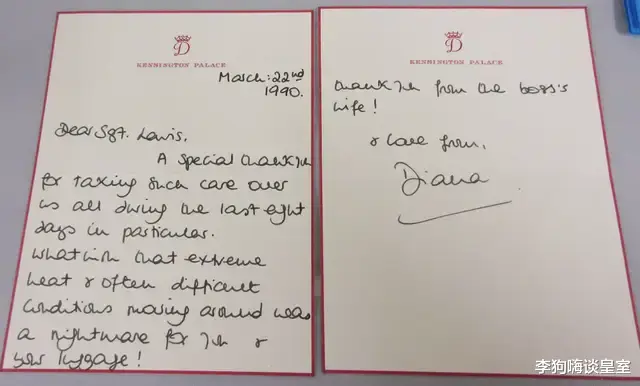 D
KENSINGTON PALACE
March: 22nd
1990.
Dear Sgt. Lewis,
A special thank you
for taking such care over
us all during the last eight
days in particular.
What with that extreme
heat & often difficult
conditions moving around was
a nightmare for you &
your luggage!
D
KENSINGTON PALACE
thank you from the boss's
wife!
& love from,
Diana
李狗嗨谈皇室